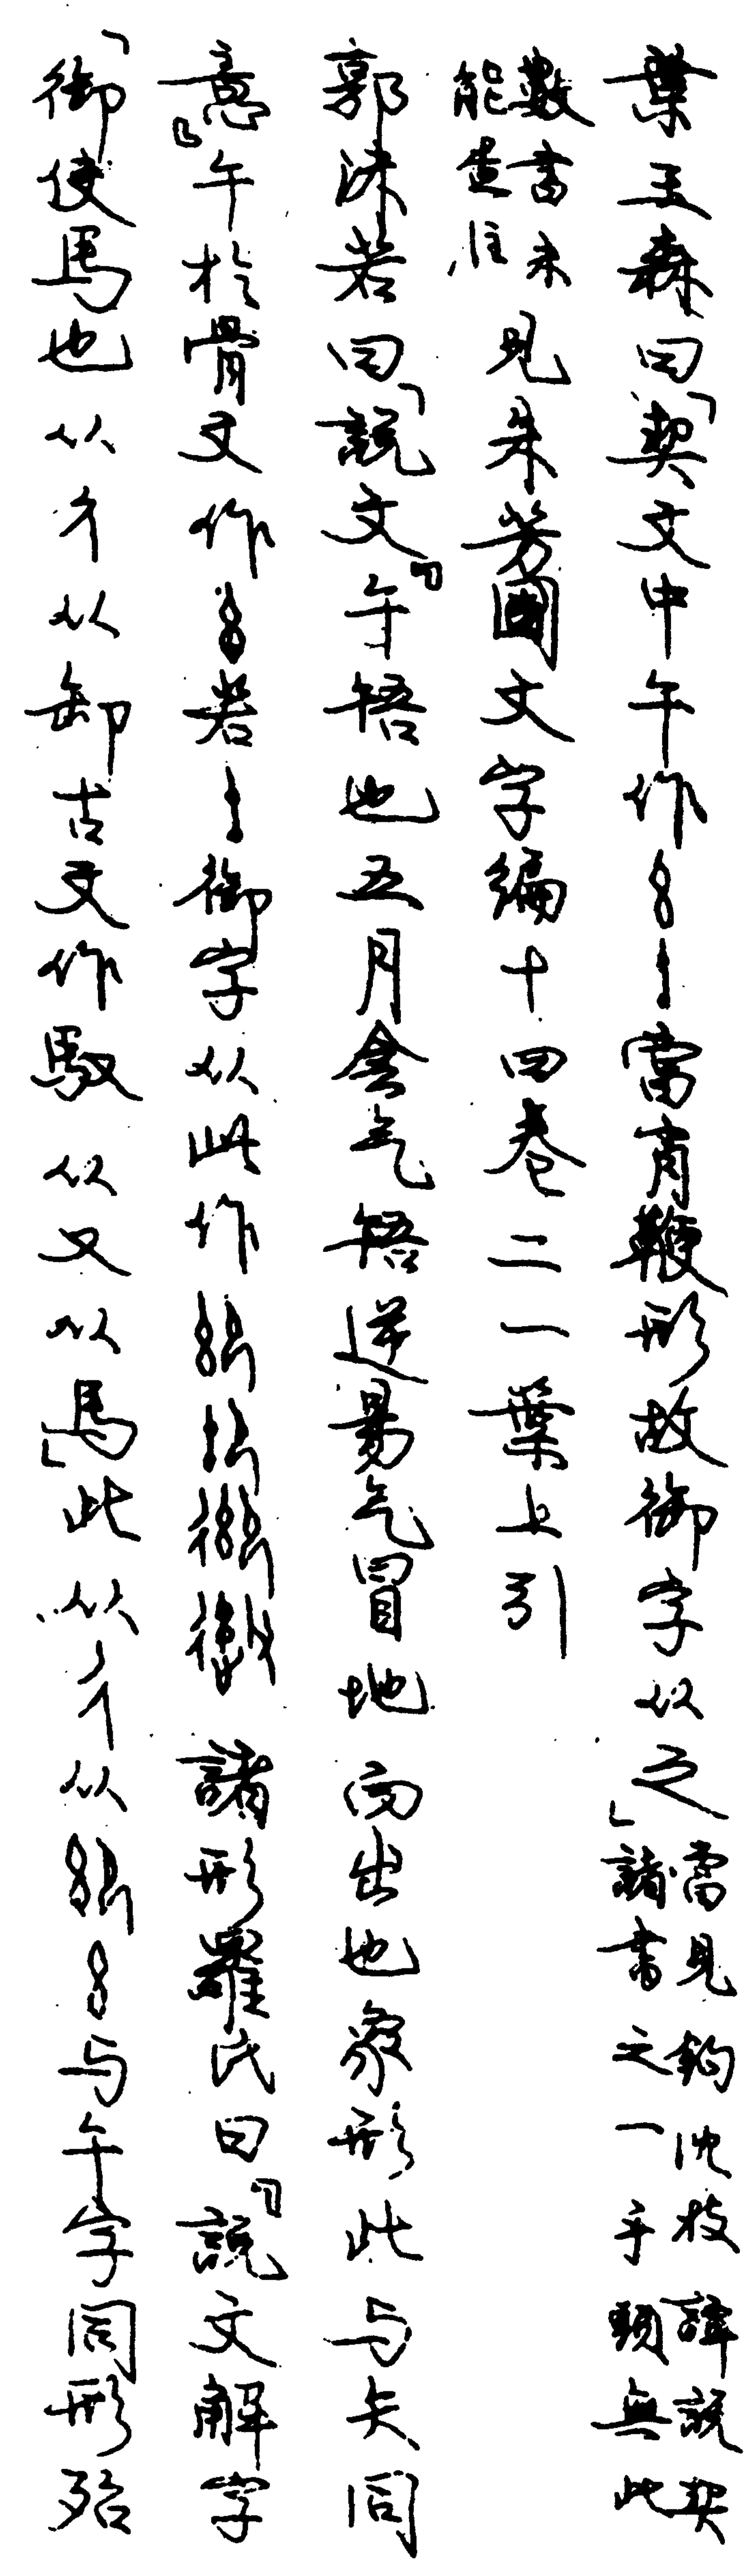 葉玉森曰「契文中午作當肖鞭形故御字从之」當見鉤沈枝譚說契諸書之一手頭無此
數書未能查注見朱芳圃文字編十四卷二一葉上引
郭沫若曰「說文『午牾也五月侌气牾逆昜气冒地而出也象形此与矢同
意』午於骨文作若御字从此作諸形羅氏曰『說文解字
「御使馬也从彳从卸古文作馭从又从馬」此从彳从与午字同形殆